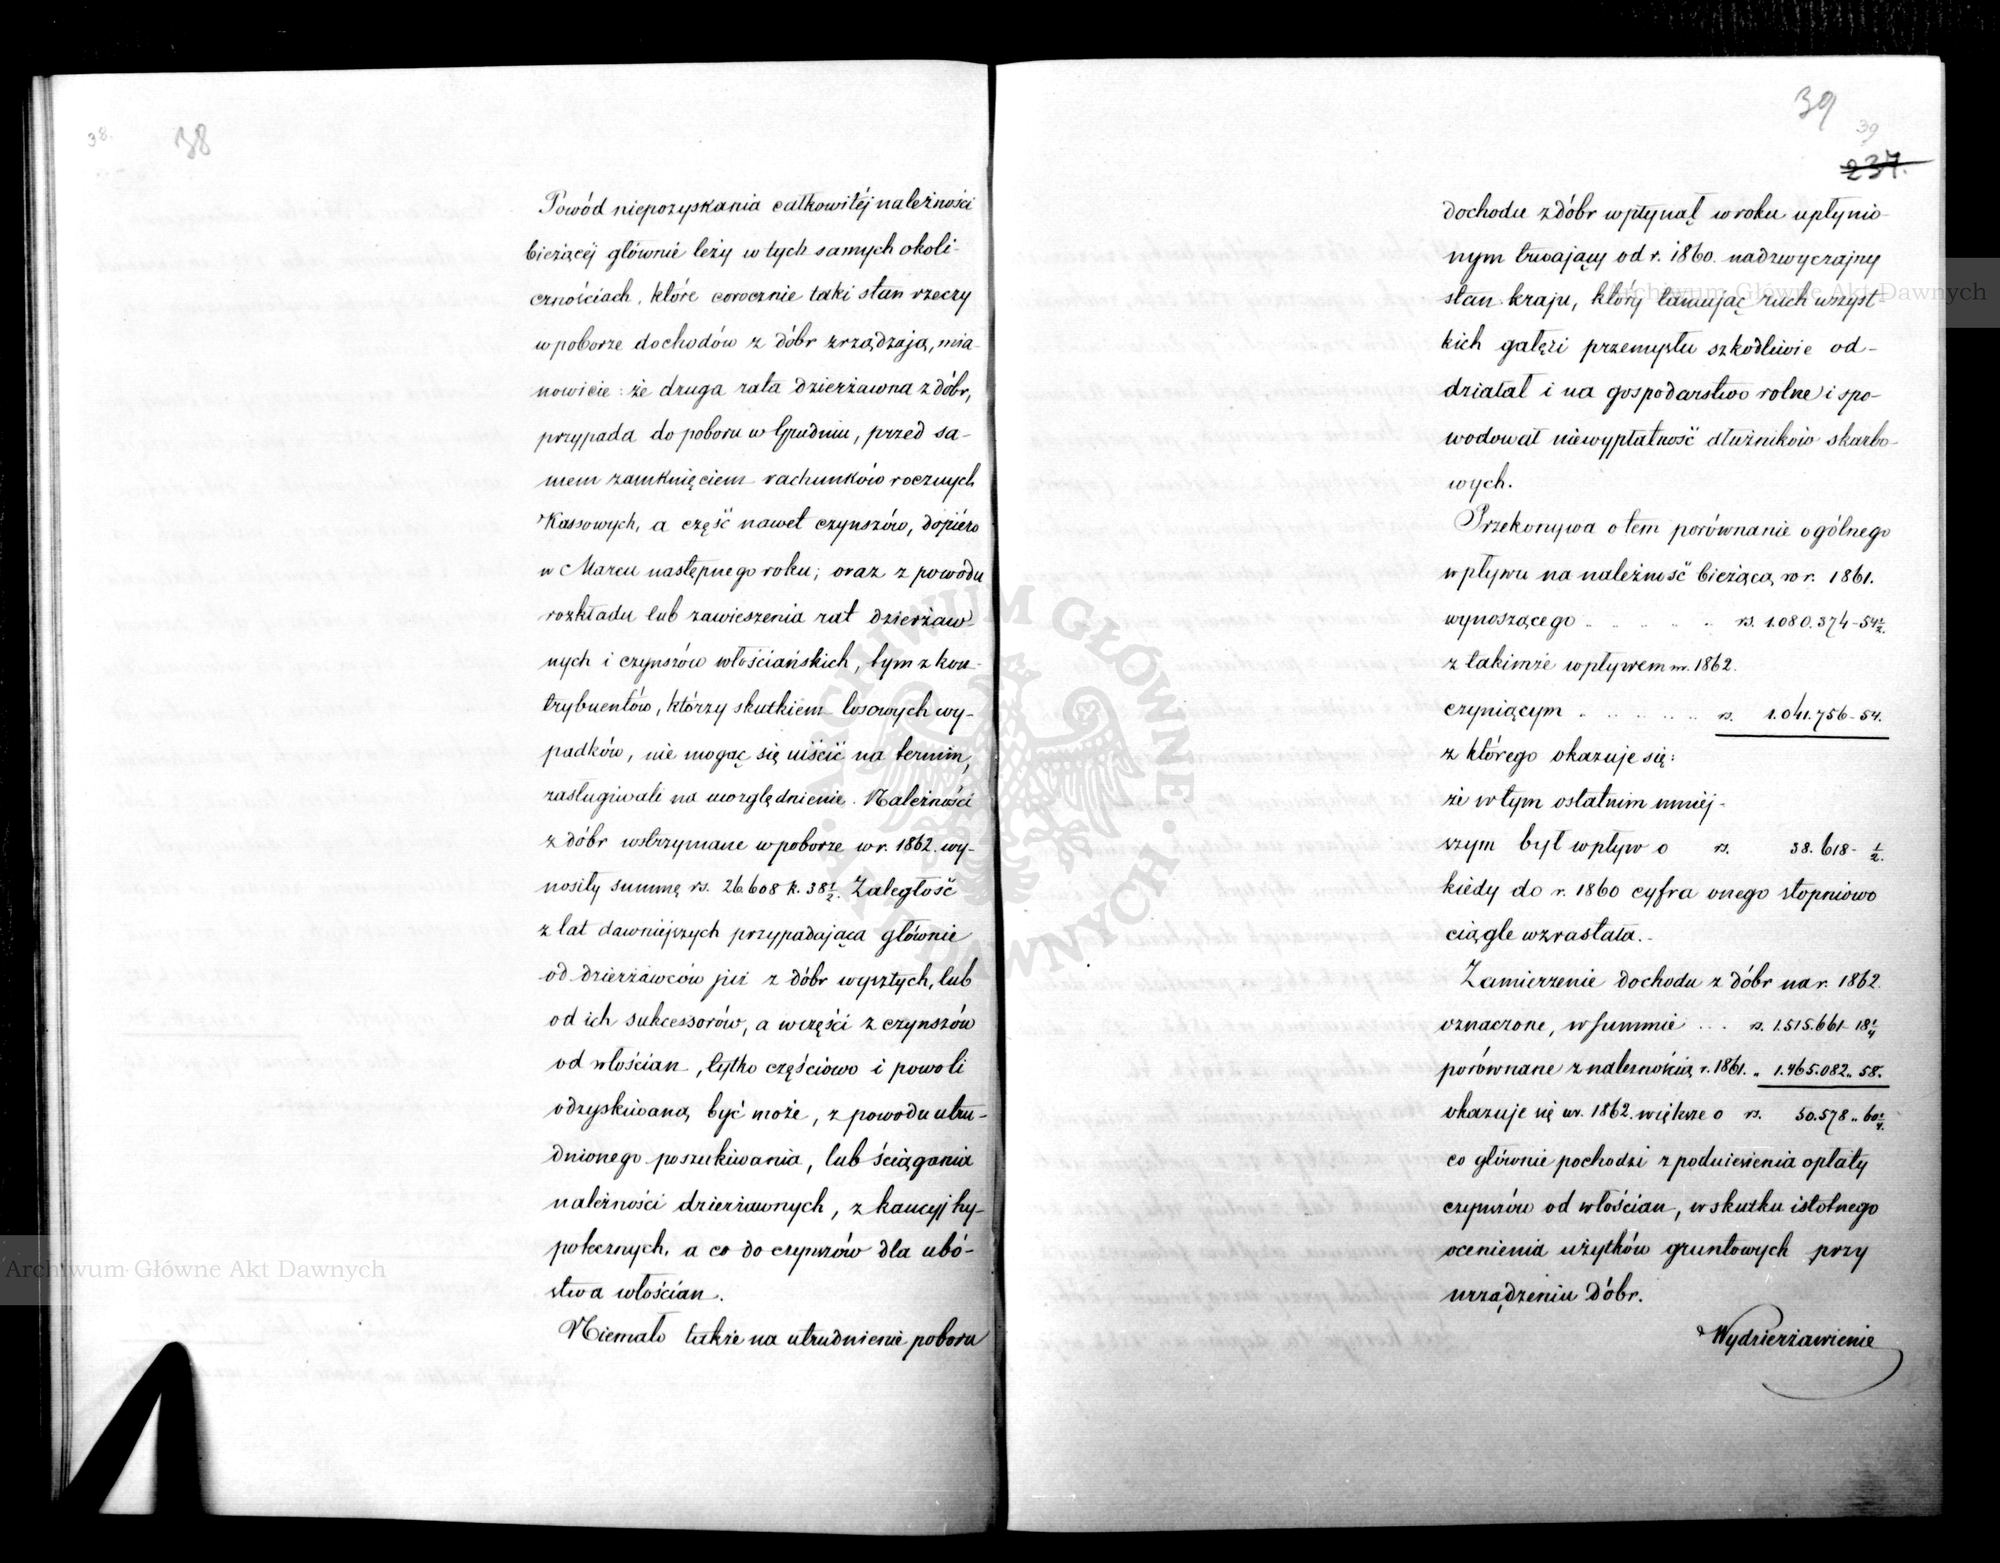 38.
38
Powód niepozyskania całkowitéj należności
bieżącéj głównie leży w tych samych okoli-
cznościach, które corocznie taki stan rzeczy
w poborze dochodów z dóbr zrządzają, mia-
nowicie: że druga rata dzierżawna z dóbr,
przypada do poboru w Grudniu, przed sa-
mem zamknięciem rachunków rocznych
Kassowych, a część nawet czynszów, dopiéro
w Marcu następnego roku; oraz z powodu
rozkładu lub zawieszenia rat dzierżaw-
nych i czynszów włościańskich, tym z kon-
trybuentów, którzy skutkiem losowych wy-
padków, nie mogąc się uiścić na termin,
zasługiwali na uwzględnienie. Należności
z dóbr wstrzymane w poborze w r. 1862. wy-
nosiły summę rs. 26.608 k. 38½. Zaległość
z lat dawniejszych przypadająca głównie
od dzierżawców już z dóbr wyszłych, lub
od ich sukcessorów, a w części z czynszów
od włościan, tylko częściowo i powoli
odzyskiwaną być może, z powodu utru-
dnionego poszukiwania, lub ściągania
należności dzierżawnych, z kaucyj hy-
potecznych, a co do czynszów dla ubó-
stwa włościan.
Niemało także na utrudnienie poboru
39
39
237.
dochodu z dóbr wpłynął w roku upłynio-
nym trwający od r. 1860. nadzwyczajny
stan kraju, który tamując ruch wszyst-
kich gałęzi przemysłu szkodliwie od-
działał i na gospodarstwo rolne i spo-
wodował niewypłatność dłużników skarbo-
wych.
Przekonywa o tem porównanie ogólnego
wpływu na należność bieżącą w r. 1861.
wynoszącego . . . . . rs. 1.080.374-54½.
z takimże wpływem w r. 1862.
czyniącym . . . . . . rs. 1.041.756-54.
z którego okazuje się:
że w tym ostatnim mniej-
szym był wpływ o rs. 38.618-½.
kiedy do r. 1860 cyfra onego stopniowo
ciągle wzrastała.-
Zamierzenie dochodu z dóbr na r. 1862.
oznaczone, w summie . . . rs. 1.515.661-18¼
porównane z należnością r. 1861. „ 1.465.082„58.
okazuje się w r. 1862. większe o rs. 50.578„60¼.
co głównie pochodzi z podniesienia opłaty
czynszów od włościan, w skutku istotnego
ocenienia użytków gruntowych przy
urządzeniu dóbr.
Wydzierżawienie
Archiwum Główne Akt Dawnych
Archiwum Główne Akt Dawnych
ARCHIWUM GŁÓWNE AKT DAWNYCH